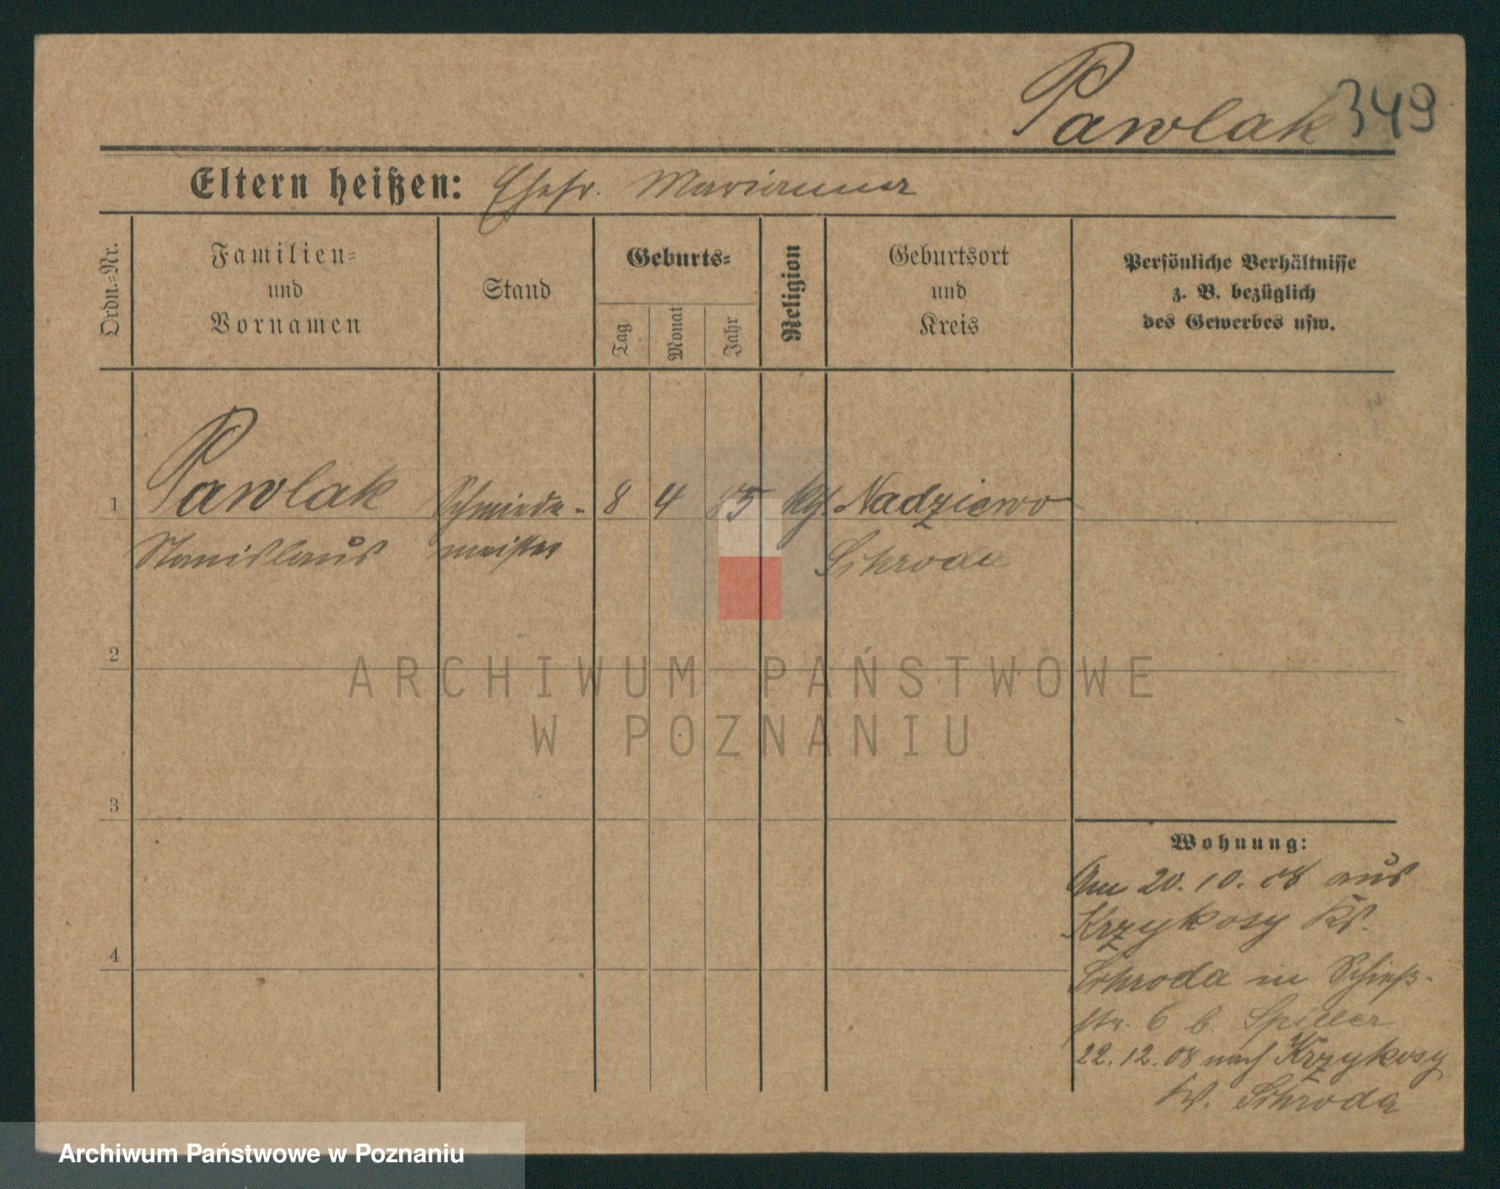 Pawlak 349
Eltern heißen: Ehefr. Marianna
Ordn.-Nr.
Familien-
und
Vornamen
Stand
Geburts-
Tag
Monat
Jahr
Religion
Geburtsort
und
Kreis
Persönliche Verhältnisse
z. B. bezüglich
des Gewerbes usw.
1 Pawlak Schmiede- 8 4 85 Nadziewo
Stanislaus meister Schroda
2
ARCHIWUM PAŃSTWOWE
W POZNANIU
3
Wohnung:
Am 20.10.08 aus
Krzykosy Kr.
4
Schroda in Schieß-
str. 6 b. Spiller
22.12.08 nach Krzykosy
Kr. Schroda
Archiwum Państwowe w Poznaniu